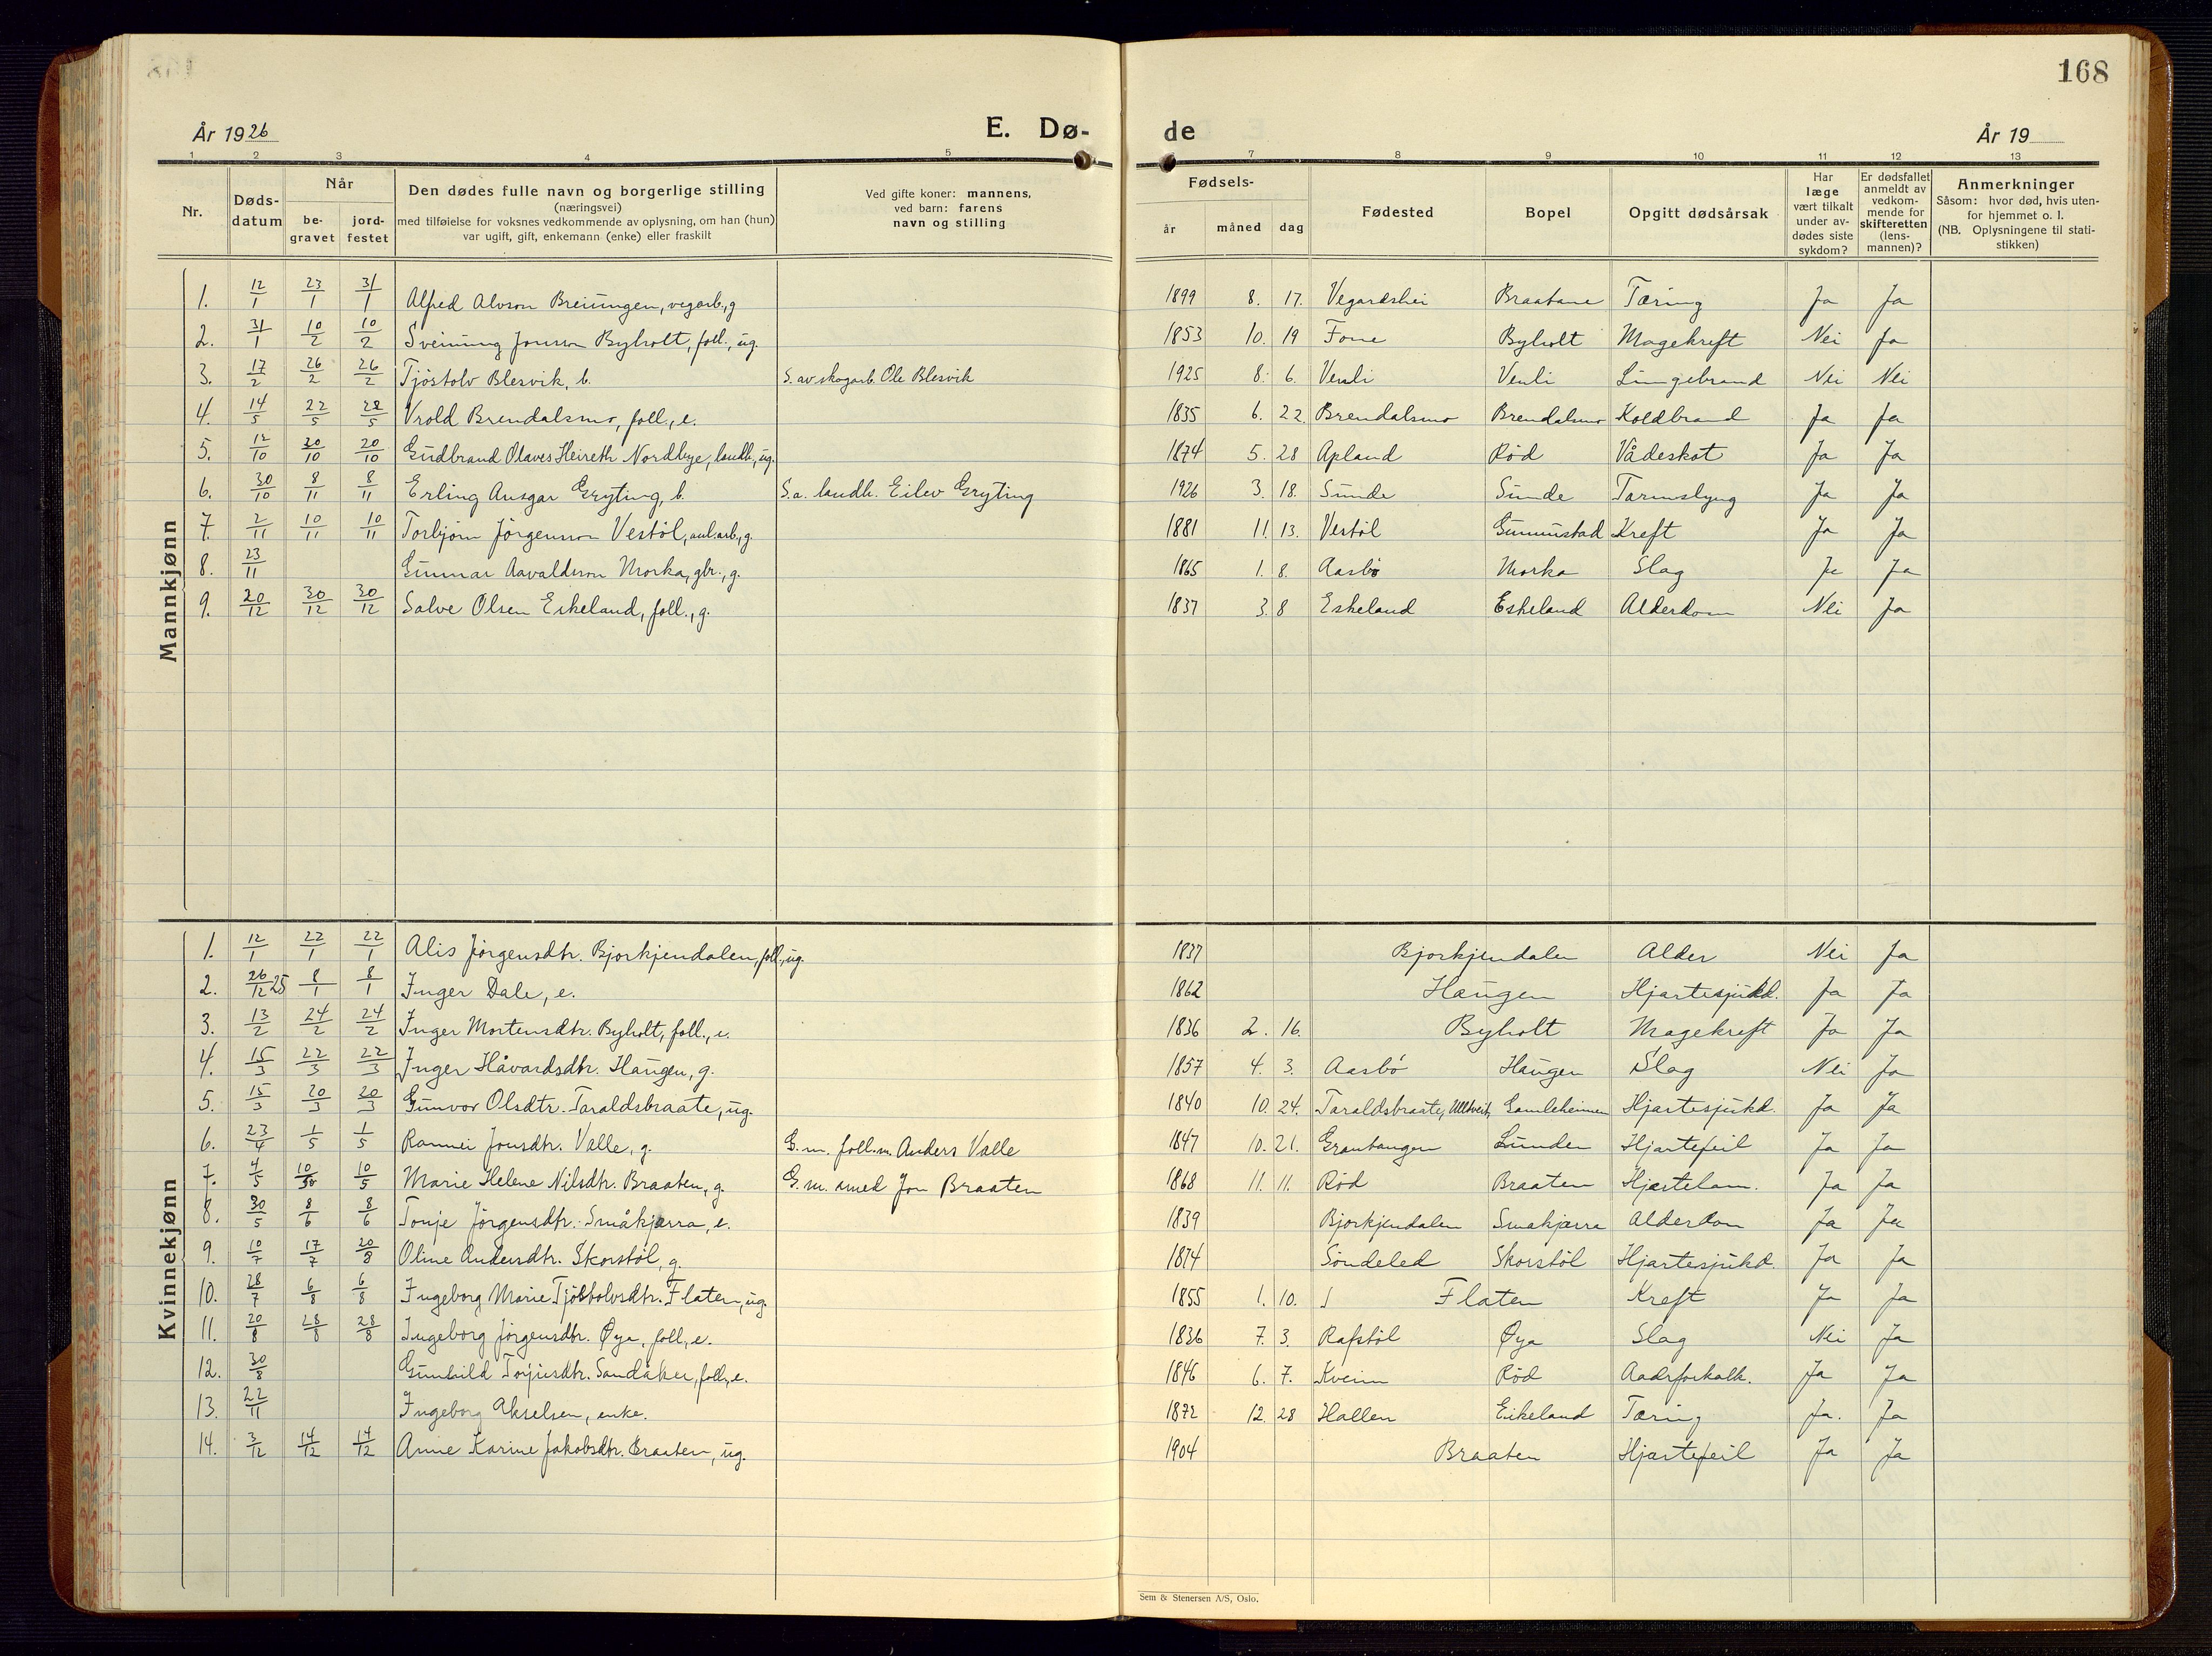 168
År 1926 E. Dø- de År 19
1 2 3 4 5 7 8 9 10 11 12 13
Nr. Døds-datum Når be-gravet jord-festet Den dødes fulle navn og borgerlige stilling (næringsvei) med tilføielse for voksnes vedkommende av oplysning, om han (hun) var ugift, gift, enkemann (enke) eller fraskilt Ved gifte koner: mannens, ved barn: farens navn og stilling Fødsels- år måned dag Fødested Bopel Opgitt dødsårsak Har læge vært tilkalt under av-dødes siste sykdom? Er dødsfallet anmeldt av vedkom-mende for skifteretten (lens-mannen)? Anmerkninger Såsom: hvor død, hvis uten-for hjemmet o. l. (NB. Oplysningene til stati-stikken)
Mannkjønn
1. 12/1 23/1 31/1 Alfred Alvson Breiungen, vegarb., g 1899 8. 17. Vegardshei Braatane Tæring Ja Ja
2. 31/1 10/2 10/2 Sveinung Jonsson Byholt, foll., ug. 1853 10. 19 Fone Byholt Magekreft Nei Ja
3. 17/2 26/2 26/2 Tjöstolv Blesvik, b. S. av skogarb. Ole Blesvik 1925 8. 6. Venli Venli Lungebrand Nei Nei
4. 14/5 22/5 22/5 Vrold Brendalsmo, foll., e. 1835 6. 22. Brendalsmo Brendalsmo Koldbrand Ja Ja
5. 12/10 20/10 20/10 Gudbrand Olaves Heireth Nordbye, landh., ug. 1874 5. 28 Apland Rød Vådeskot Ja Ja
6. 30/10 8/11 8/11 Erling Ansgar Gryting, b. S. a. landh. Eilev Gryting 1926 3. 18. Sunde Sunde Tarmslyng Ja Ja
7. 2/11 10/11 10/11 Torbjørn Jörgensson Vestöl, anl.arb., g. 1881 11. 13. Vestöl Gumunstad Kreft Ja Ja
8. 23/11 Gunnar Aavaldsson Morka, gbr., g. 1865 1. 8. Aasbö Morka Slag Ja Ja
9. 20/12 30/12 30/12 Salve Olsen Eskeland, foll., g. 1837 3. 8 Eskeland Eskeland Alderdom Nei Ja
Kvinnekjønn
1. 12/1 22/1 22/1 Alis Jörgensdtr. Bjorkjendalen, foll., ug. 1837 Bjorkjendalen Alder Nei Ja
2. 26/12 25 8/1 8/1 Inger Dale, e. 1862 Haugen Hjartesjukd. Ja Ja
3. 13/2 24/2 24/2 Inger Mortensdtr. Byholt, foll., e. 1836 2. 16. Byholt Magekreft Ja Ja
4. 15/3 22/3 22/3 Inger Håvardsdtr. Haugen, g. 1857 4. 3. Aasbö Haugen Slag Nei Ja
5. 15/3 20/3 20/3 Gunvor Olsdtr. Taraldsbraate, ug. 1840 10. 24. Taraldsbraate, Ulltveit, Gamleheimen Hjartesjukd. Ja Ja
6. 23/4 1/5 1/5 Rannei Jonsdtr. Valle, g. G. m. foll.m. Anders Valle 1847 10. 21. Grantangen Lunden Hjartefeil Ja Ja
7. 4/5 10/5 10/5 Marie Helene Nilsdtr. Braaten, g. G. m. smed Jon Braaten 1868 11. 11. Rød Braaten Hjartelam. Ja Ja
8. 30/5 8/6 8/6 Tonje Jörgensdtr. Småkjærra, e. 1839 Bjorkjendalen Smakjærra Alderdom Ja Ja
9. 10/7 17/7 20/8 Oline Andersdtr. Skorstöl, g. 1874 Söndeled Skorstöl Hjartesjukd. Ja Ja
10. 28/7 6/8 6/8 Ingeborg Marie Tjöstolvsdtr. Flaten, ug. 1855 1. 10. Flaten Kreft Ja Ja
11. 20/8 28/8 28/8 Ingeborg Jørgensdtr. Øya, foll., e. 1836 7. 3. Rafstöl Øya Slag Nei Ja
12. 30/8 Gunhild Torjusdtr. Sandåker, foll., e. 1846 6. 7. Kveim Rød Aadrforkalk. Ja Ja
13. 22/11 Ingeborg Akselsen, enke. 1872 12. 28 Hallen Eikeland Tæring Ja. Ja
14. 3/12 14/12 14/12 Anne Karine Jakobsdtr. Braaten, ug. 1904 Braaten Hjartefeil Ja Ja
Sem & Stenersen A/S, Oslo.